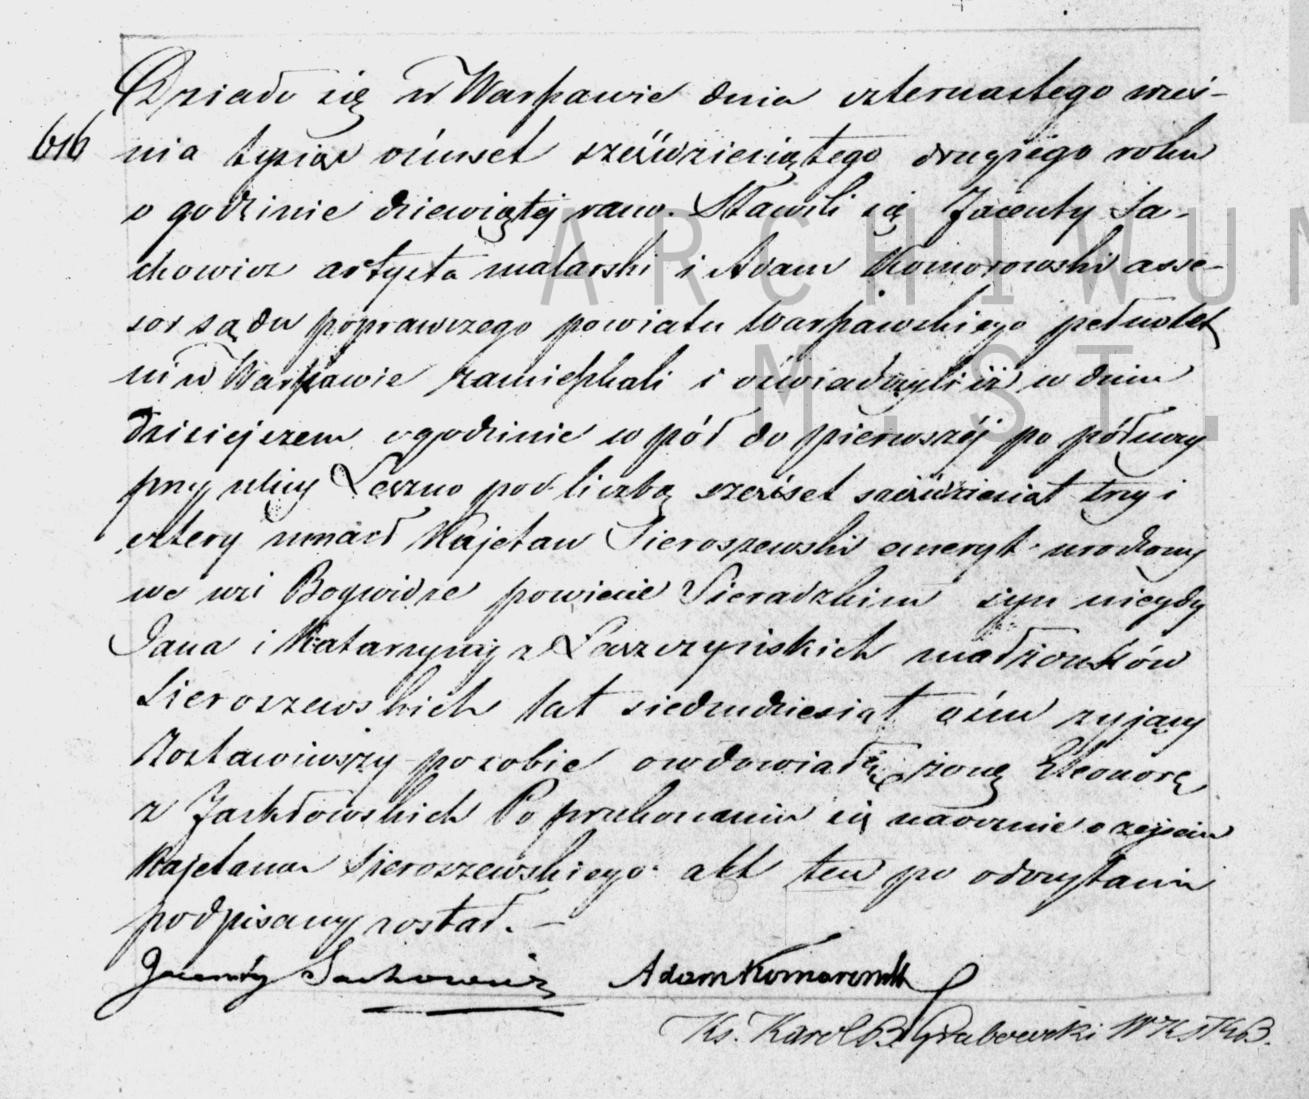 Działo się w Warszawie dnia czternastego wrześ-
616 nia tysiąc ośmset sześćdziesiątego drugiego roku
o godzinie dziewiątej rano. Stawili się Jacenty Sa-
chowicz artysta malarski i Adam Komorowski asse-
sor sądu poprawczego powiatu Warszawskiego pełnolet
ni w Warszawie zamieszkali i oświadczyli iż w dniu
dzisiejszem o godzinie w pół do pierwszéj po północy
przy ulicy Leszno pod liczbą sześćset sześćdziesiąt trzy i
cztery umarł Kajetan Sieroszewski emeryt urodzony
we wsi Bogwidze powiecie Sieradzkim syn niegdy
Jana i Katarzyny z Łaszczyńskich małżonków
Sieroszewskich lat siedmdziesiąt ośm żyjący
Zostawiwszy po sobie owdowiałą żonę Eleonorę
z Jackowskich Po przekonaniu się naocznie o zejściu
Kajetana Sieroszewskiego akt ten po odczytaniu
podpisany został. —
Jacenty Sachowicz Adam Komorowski
Ks. Karol B. Grabowski
ARCHIWUM
M. ST.